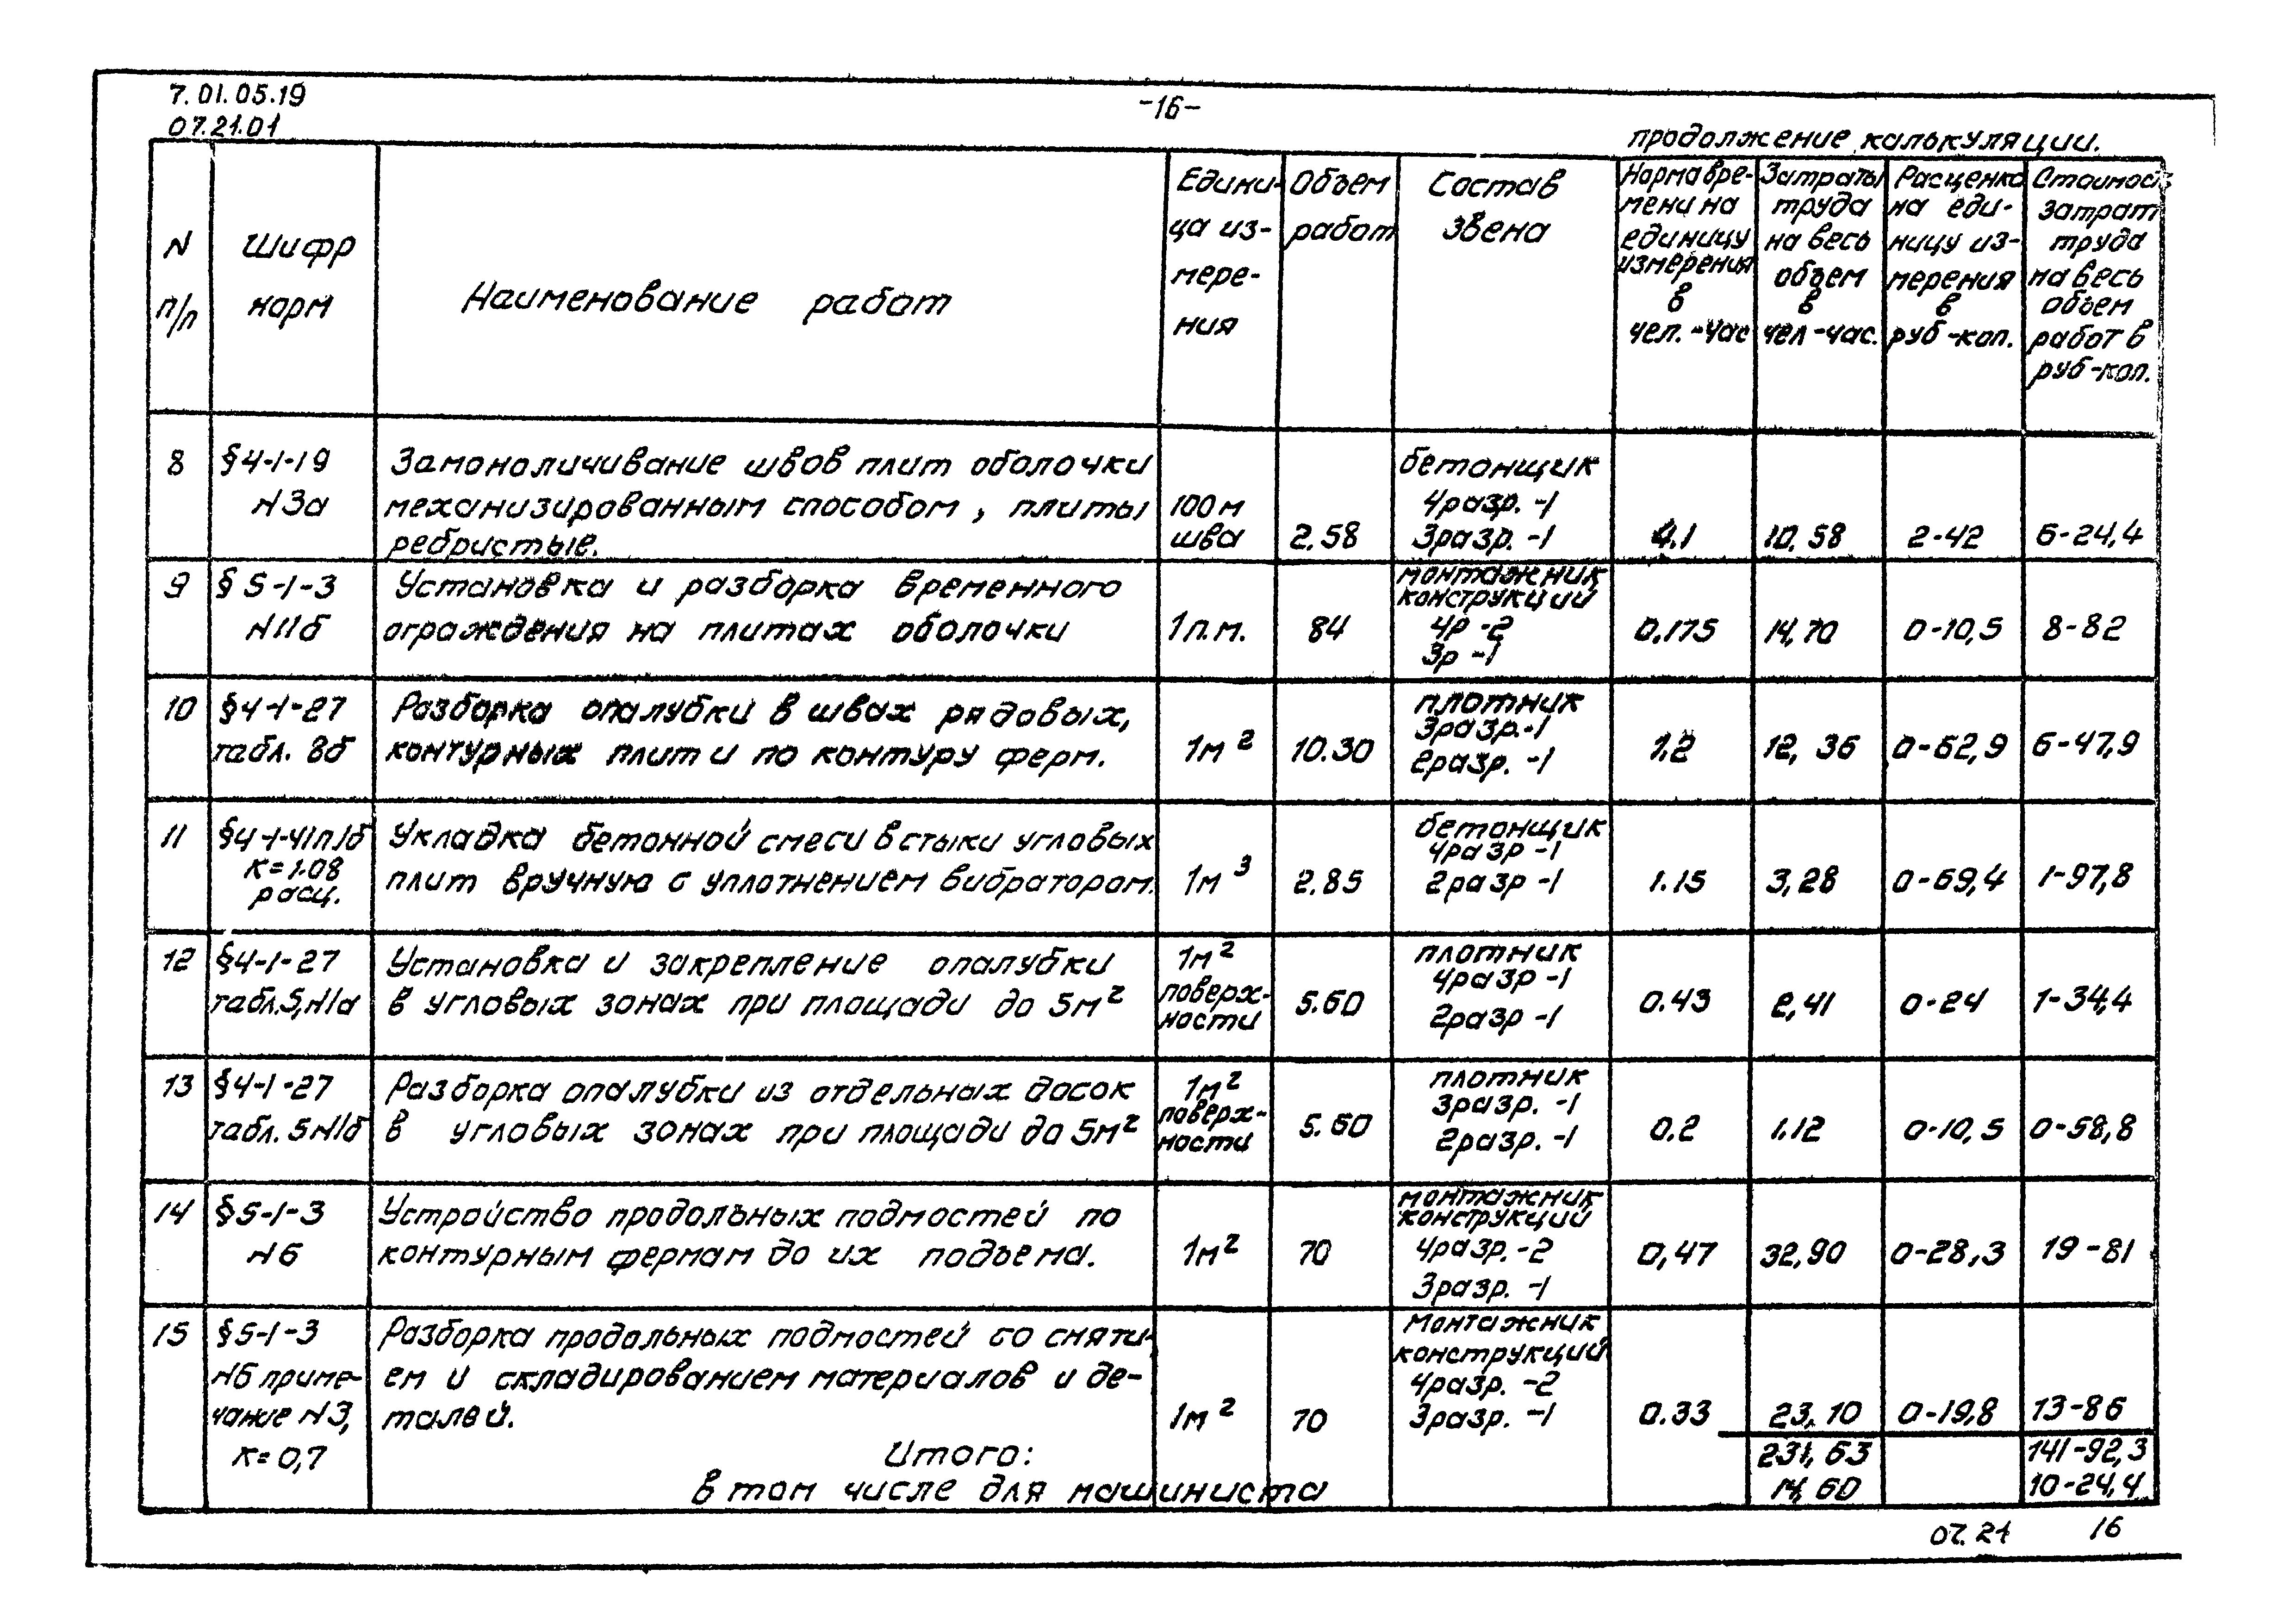 7.01.05.19
07.21.01
-16-
продолжение калькуляции.
N п/п
Шифр норм
Наименование работ
Едини-
ца из-
мере-
ния
Объем
работ
Состав
звена
Норма вре-
мени на
единицу
измерения
в
чел.-час
Затраты
труда
на весь
объем
в
чел-час.
Расценка
на еди-
ницу из-
мерения
в
руб-коп.
Стоимость
затрат
труда
на весь
объем
работ в
руб-коп.
8
§4-1-19
N3а
Замоноличивание швов плит оболочки
механизированным способом, плиты
ребристые.
100м
шва
2.58
бетонщик
4разр.-1
3разр.-1
4.1
10.58
2-42
6-24,4
9
§5-1-3
N11б
Установка и разборка временного
ограждения на плитах оболочки
1п.м.
84
монтажник
конструкций
4р-2
3р-1
0,175
14,70
0-10,5
8-82
10
§4-1-27
табл. 8б
Разборка опалубки в швах рядовых,
контурных плит и по контуру ферм.
1м²
10.30
плотник
3разр.-1
2разр.-1
1.2
12,36
0-62,9
6-47,9
11
§4-1-41п1б
К=1.08
расц.
Укладка бетонной смеси в стыки угловых
плит вручную с уплотнением вибратором.
1м³
2.85
бетонщик
4разр-1
2разр-1
1.15
3,28
0-69,4
1-97,8
12
§4-1-27
табл.5,N1а
Установка и закрепление опалубки
в угловых зонах при площади до 5м²
1м²
поверх-
ности
5.60
плотник
4разр-1
2разр-1
0.43
2,41
0-24
1-34,4
13
§4-1-27
табл.5N1б
Разборка опалубки из отдельных досок
в угловых зонах при площади до 5м²
1м²
поверх-
ности
5.60
плотник
3разр.-1
2разр.-1
0.2
1.12
0-10,5
0-58,8
14
§5-1-3
N6
Устройство продольных подмостей по
контурным фермам до их подъема.
1м²
70
монтажник
конструкций
4разр.-2
3разр.-1
0,47
32,90
0-28,3
19-81
15
§5-1-3
N6 приме-
чание N3,
К=0,7
Разборка продольных подмостей со сняти-
ем и складированием материалов и де-
талей.
1м²
70
монтажник
конструкций
4разр.-2
3разр.-1
0.33
23,10
0-19,8
13-86
Итого:
231,63
141-92,3
в том числе для машиниста
14,60
10-24,4
07.21
16